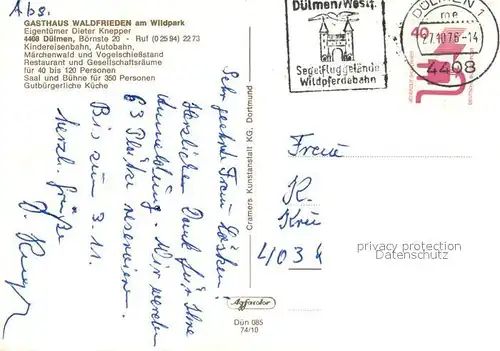 Abs.
GASTHAUS WALDFRIEDEN am Wildpark
Eigentümer Dieter Knepper
4408 Dülmen, Börnste 20 - Ruf (0 25 94) 22 73
Kindereisenbahn, Autobahn,
Märchenwald und Vogelschießstand
Restaurant und Gesellschaftsräume
für 40 bis 120 Personen
Saal und Bühne für 350 Personen
Gutbürgerliche Küche
Dülmen/Westf.
Segelfluggelände
Wildpferdebahn
DÜLMEN 1
27.10.76-14
4408
40
Sehr geehrte Frau
Herzlichen Dank für Ihre
Anmeldung. Wir werden
63 Plätze reservieren.
Bis zum 3.11.
herzl. Grüße
D.
Cramers Kunstanstalt KG, Dortmund
Frau
K.
403
privacy protection
Datenschutz
Agfacolor
Dün 085
74/10